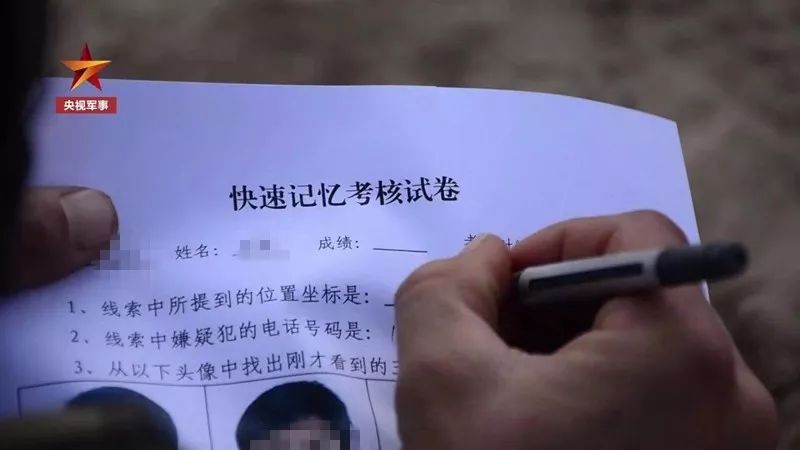 央视军事
快速记忆考核试卷
姓名: 成绩:
1、线索中所提到的位置坐标是:
2、线索中嫌疑犯的电话号码是:
3、从以下头像中找出刚才看到的三